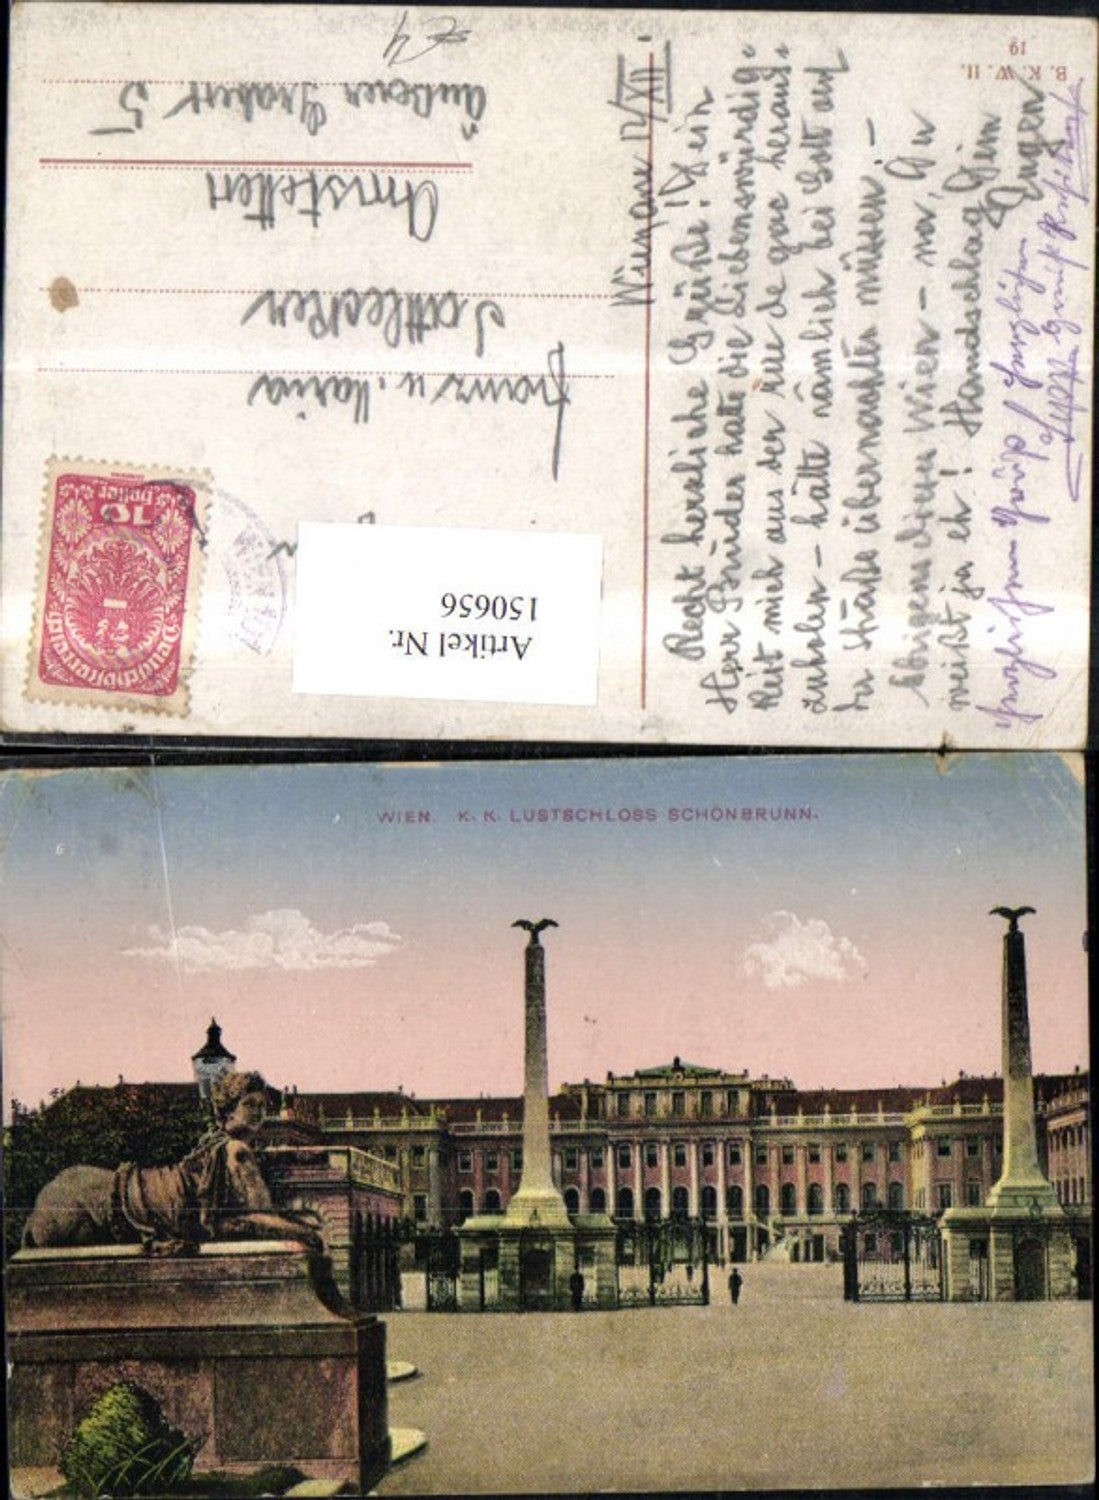 B. K. W. II.
19
Wien, am 12/XII.
Recht herzliche Grüße! Dein
Herr Bruder hatte die Liebenswürdig-
keit mich aus der rue de gare heraus-
zuholen – hätte nämlich bei Gott auf
der Straße übernachten müssen! –
Übrigens dieses Wien – na, Du
weißt ja eh! Handschlag Dein
Eugen
Franz u. Maria
Sattlecker
Amstetten
Äußerer Graben 5
10
heller
Deutschösterreich
Artikel Nr.
150656
WIEN. K. K. LUSTSCHLOSS SCHÖNBRUNN.